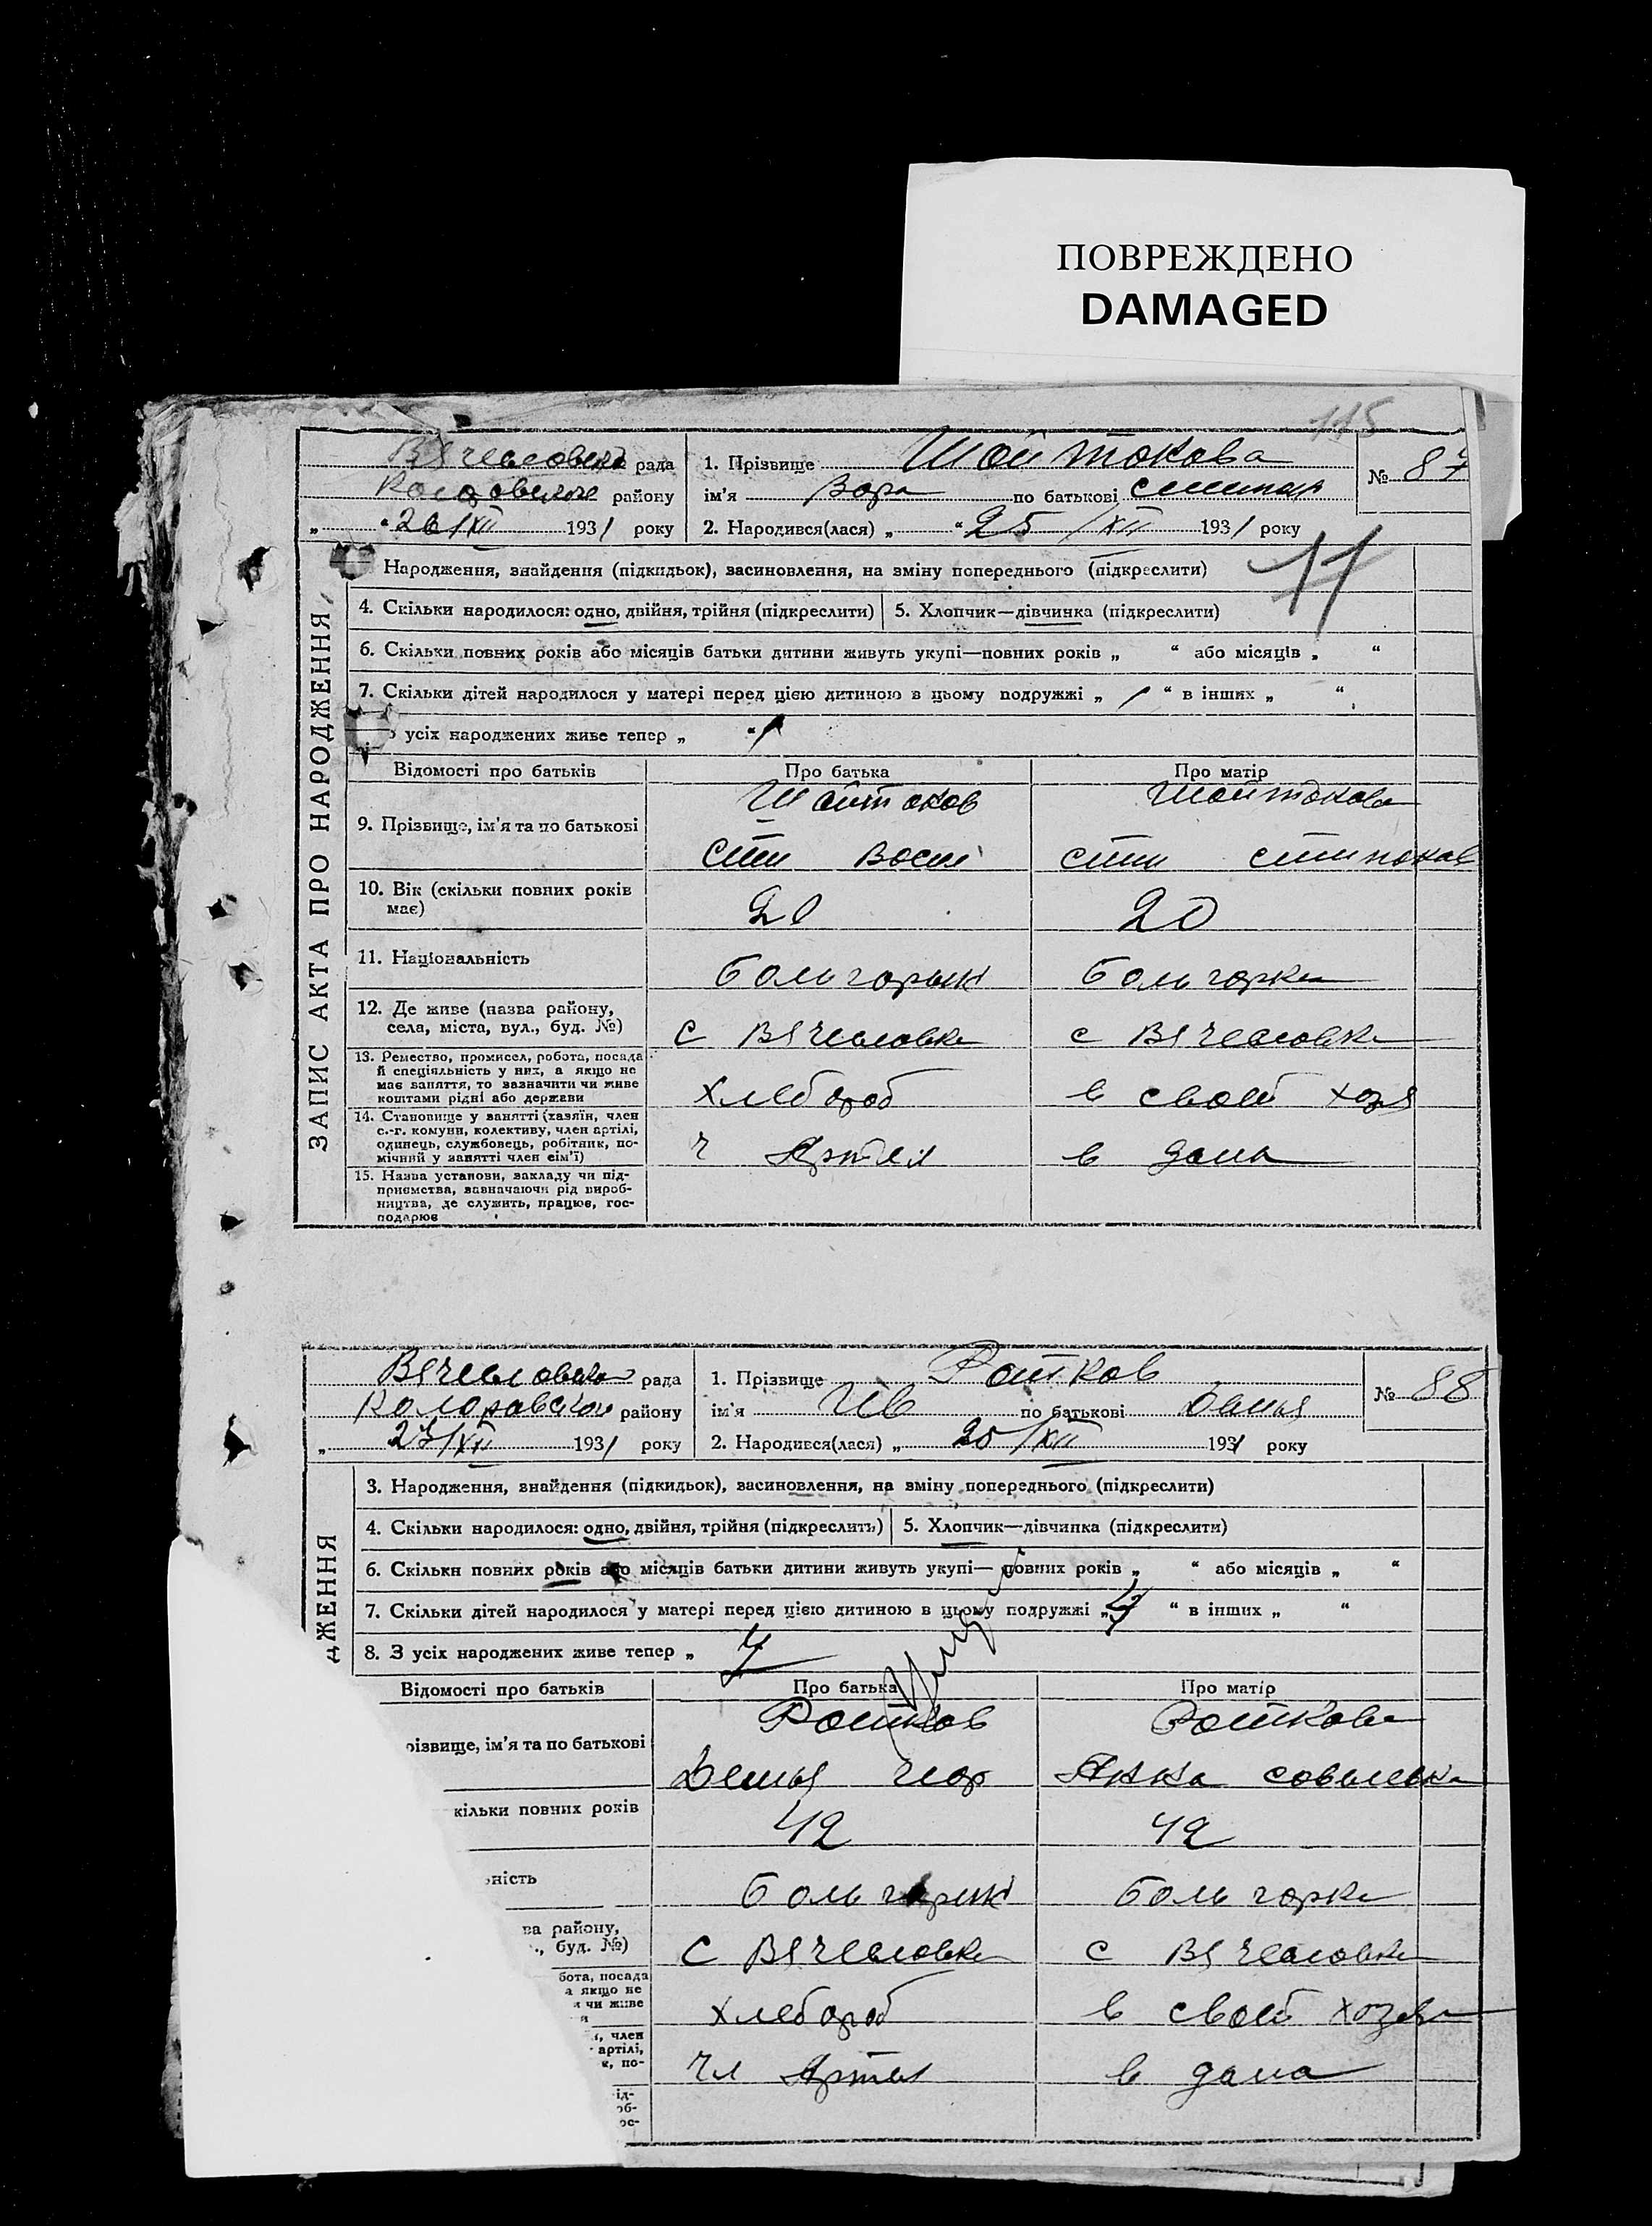 ПОВРЕЖДЕНО
DAMAGED
115
Вячеславська рада
1. Прізвище Шойтокова
№ 87
району
ім'я Вара по батькові
„ “26/XII 1931 року
2. Народився(лася) „ “25/XII 1931 року
11
ЗАПИС АКТА ПРО НАРОДЖЕННЯ
Народження, знайдення (підкидьок), засиновлення, на зміну попереднього (підкреслити)
4. Скільки народилося: одно, двійня, трійня (підкреслити)
5. Хлопчик—дівчинка (підкреслити)
6. Скільки повних років або місяців батьки дитини живуть укупі—повних років „ “ або місяців „ “
7. Скільки дітей народилося у матері перед цією дитиною в цьому подружжі „ / “ в інших „ “
усіх народжених живе тепер „ “
Відомості про батьків
Про батька
Про матір
9. Прізвище, ім'я та по батькові
Шойтоков
Шойтокова
Васил
10. Вік (скільки повних років має)
20
11. Національність
больгорын
больгорка
12. Де живе (назва району, села, міста, вул., буд. №)
с Вячеславка
с Вячеславка
13. Ремество, промисел, робота, посада й спеціяльність у них, а якщо не має заняття, то зазначити чи живе коштами рідні або держави
хлебороб
в своей хозя
14. Становище у занятті (хазяїн, член с.-г. комуни, колективу, член артілі, одинець, службовець, робітник, помічний у занятті член сім'ї)
ч Артели
в дома
15. Назва установи, закладу чи підприємства, зазначаючи рід виробництва, де служить, працює, господарює
Вячеславська рада
1. Прізвище Райков
№ 88
Коларавской району
ім'я Ив по батькові
„ 27/XII 1931 року
2. Народився(лася) „ 25/XII 1931 року
ДЖЕННЯ
3. Народження, знайдення (підкидьок), засиновлення, на зміну попереднього (підкреслити)
4. Скільки народилося: одно, двійня, трійня (підкреслити)
5. Хлопчик—дівчинка (підкреслити)
6. Скільки повних років або місяців батьки дитини живуть укупі— повних років „ “ або місяців „ “
7. Скільки дітей народилося у матері перед цією дитиною в цьому подружжі „ “ в інших „ “
8. З усіх народжених живе тепер „ 7
Відомості про батьків
Про батька
Про матір
різвище, ім'я та по батькові
Райков
Райкова
Демья
Анна Совелевна
кільки повних років
42
42
ність
больгорын
больгорка
ва району,
., буд. №)
с Вячеславка
с Вячеславка
бота, посада
а якщо не
и чи живе
хлебороб
в своей хозяв
, член
артілі,
к, по-
Чл Артел
в дома
ід-
об-
ос-